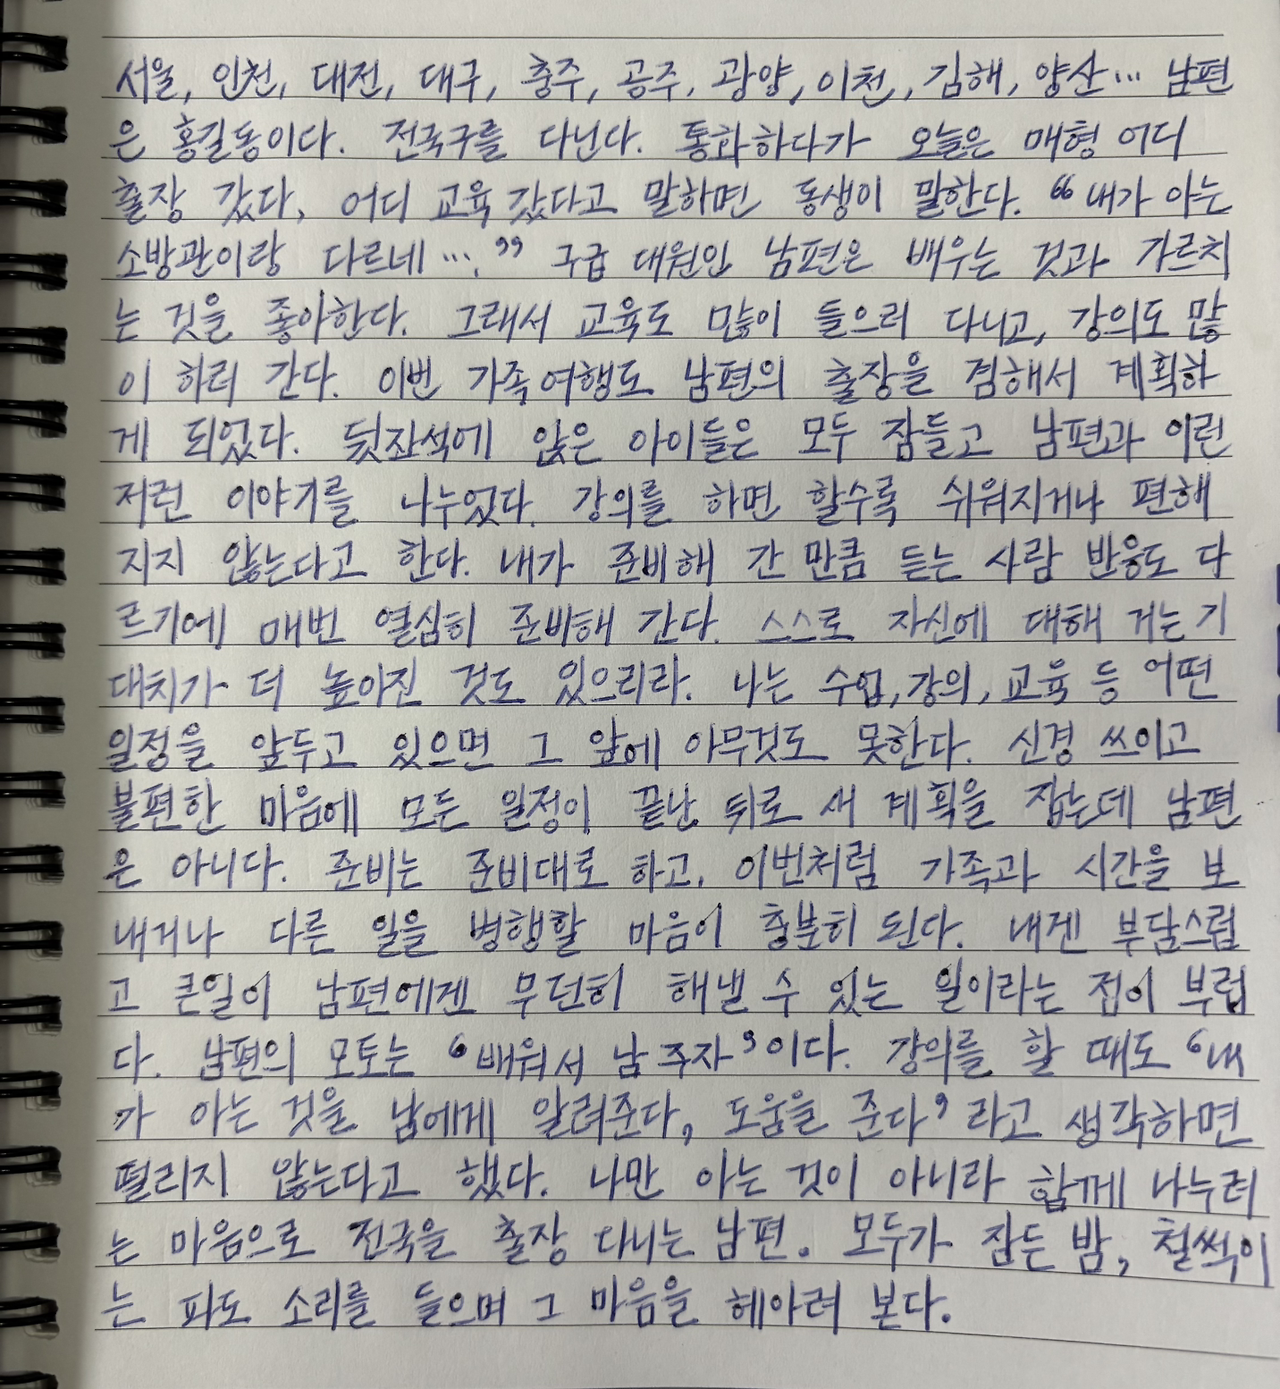 서울, 인천, 대전, 대구, 충주, 공주, 광양, 이천, 김해, 양산... 남편
은 홍길동이다. 전국구를 다닌다. 통화하다가 오늘은 매형 어디
출장 갔다, 어디 교육 갔다고 말하면 동생이 말한다. “내가 아는
소방관이랑 다르네....” 구급 대원인 남편은 배우는 것과 가르치
는 것을 좋아한다. 그래서 교육도 많이 들으러 다니고, 강의도 많
이 하러 간다. 이번 가족여행도 남편의 출장을 겸해서 계획하
게 되었다. 뒷좌석에 앉은 아이들은 모두 잠들고 남편과 이런
저런 이야기를 나누었다. 강의를 하면 할수록 쉬워지거나 편해
지지 않는다고 한다. 내가 준비해 간 만큼 듣는 사람 반응도 다
르기에 매번 열심히 준비해 간다. 스스로 자신에 대해 거는 기
대치가 더 높아진 것도 있으리라. 나는 수업, 강의, 교육 등 어떤
일정을 앞두고 있으면 그 앞에 아무것도 못한다. 신경 쓰이고
불편한 마음에 모든 일정이 끝난 뒤로 새 계획을 잡는데 남편
은 아니다. 준비는 준비대로 하고, 이번처럼 가족과 시간을 보
내거나 다른 일을 병행할 마음이 충분히 된다. 내겐 부담스럽
고 큰일이 남편에겐 무던히 해낼 수 있는 일이라는 점이 부럽
다. 남편의 모토는 ‘배워서 남 주자’이다. 강의를 할 때도 ‘내
가 아는 것을 남에게 알려준다, 도움을 준다’라고 생각하면
떨리지 않는다고 했다. 나만 아는 것이 아니라 함께 나누려
는 마음으로 전국을 출장 다니는 남편. 모두가 잠든 밤, 철썩이
는 파도 소리를 들으며 그 마음을 헤아려 본다.